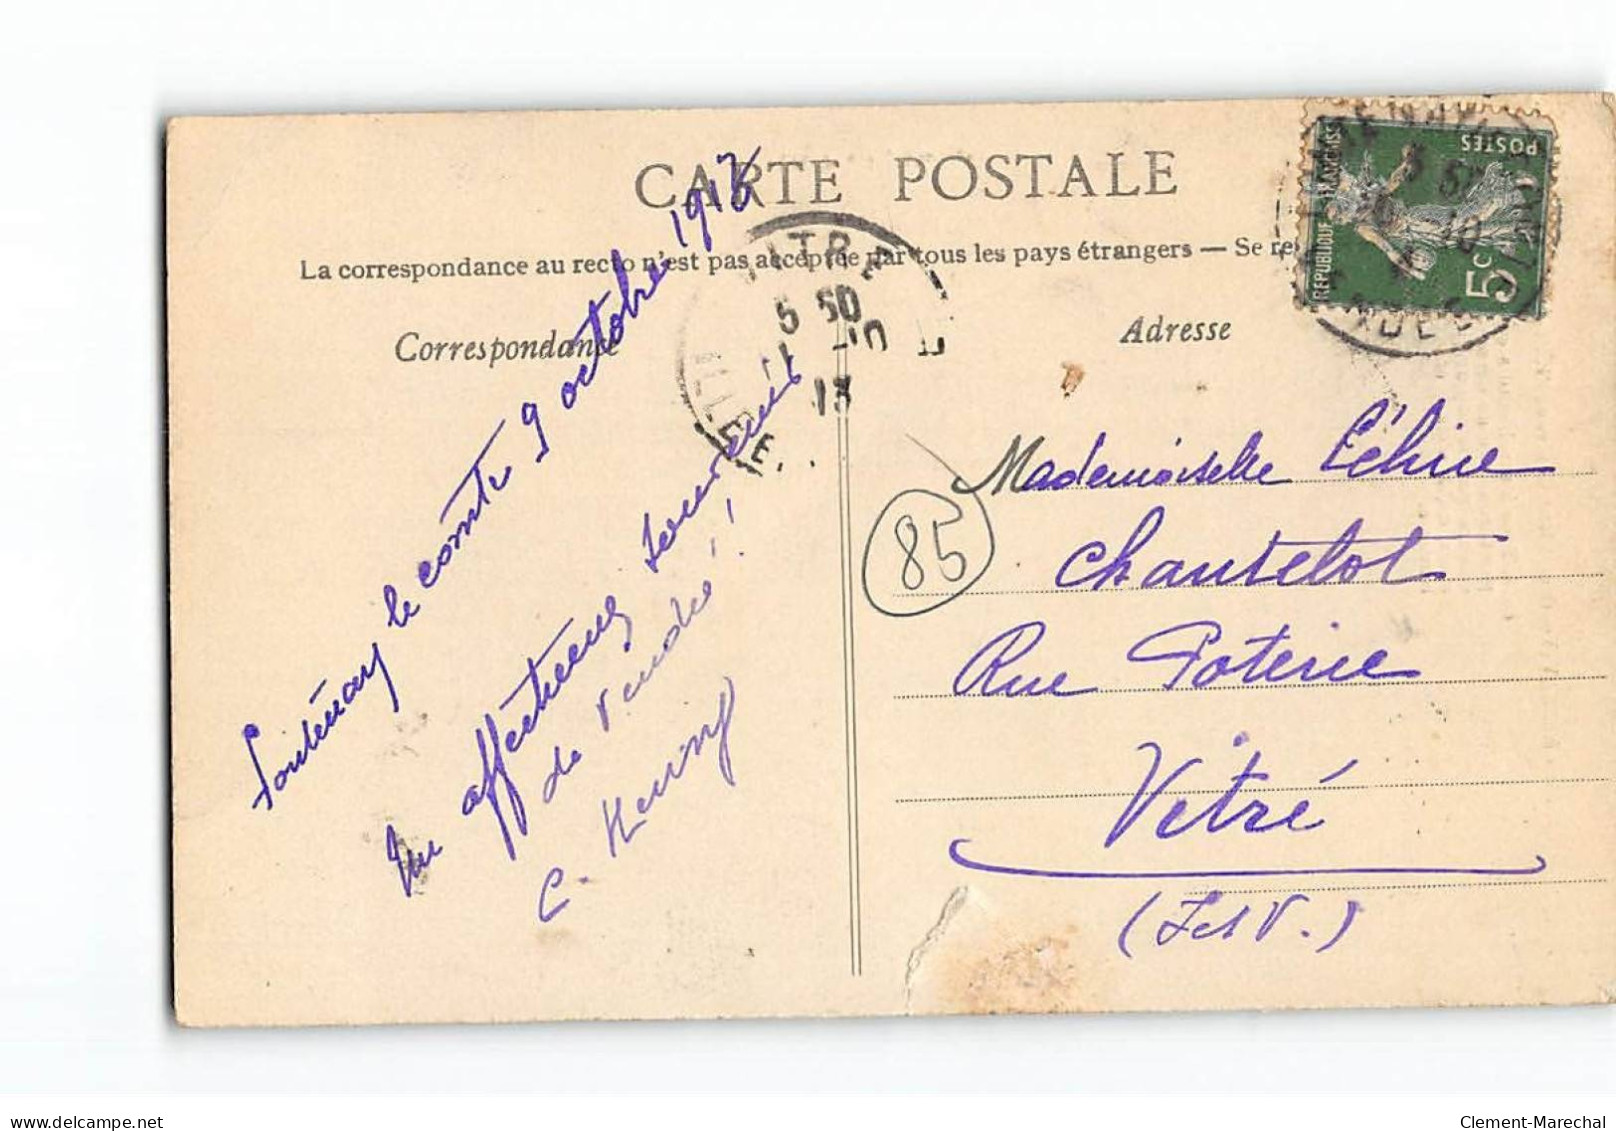 CARTE POSTALE
La correspondance au recto n'est pas acceptée par tous les pays étrangers — Se re
Correspondance
Adresse
REPUBLIQUE FRANÇAISE
POSTES
5c
VITRE
5 50
11 -10
13
ILLE
Fontenay le comte 9 octobre 1913
Un affectueux souvenir
de Vendée !
C.
85
Mademoiselle
Chantelot
Rue Poterie
Vitré
(I et V.)
delcampe.net
Clement-Marechal